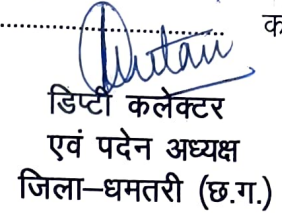 .............................. क
डिप्टी कलेक्टर
एवं पदेन अध्यक्ष
जिला–धमतरी (छ.ग.)